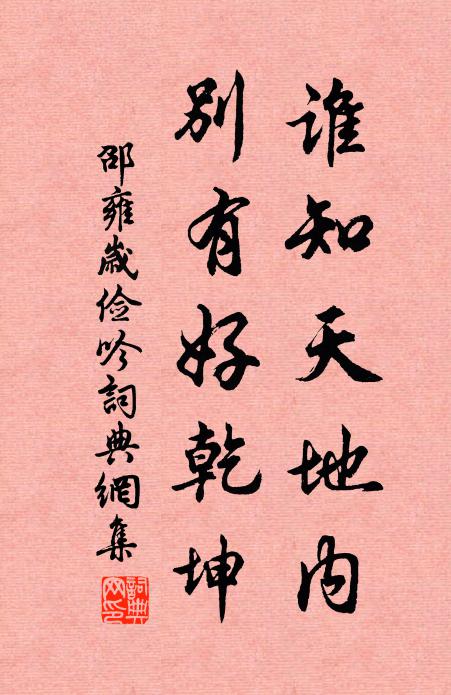 誰知天地內
別有好乾坤
邵雍歲儉吟詞典網集